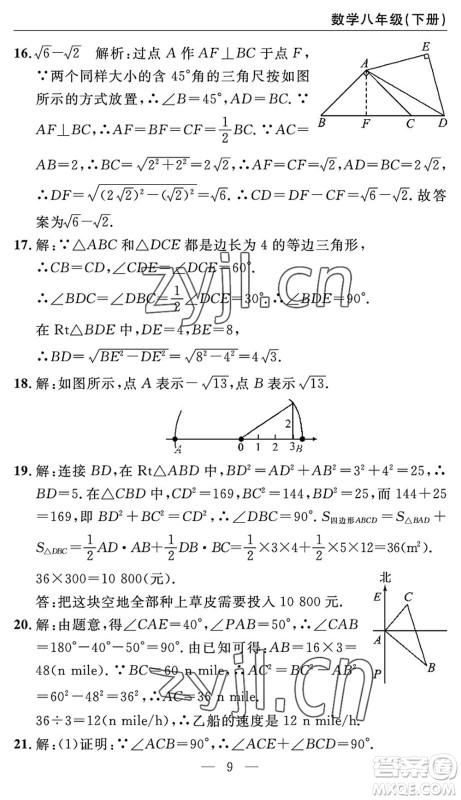 数学八年级(下册)
16.√6-√2　解析:过点 A 作 AF⊥BC 于点 F,
∵两个同样大小的含 45°角的三角尺按如图
所示的方式放置,∴∠B=45°,AD=BC.∵
AF⊥BC,∴AF=BF=CF=1/2BC.∵AC=
AB=2,∴BC=√(2²+2²)=2√2,∴AF=CF=√2,AD=2√2.
∴DF=√((2√2)²-(√2)²)=√6.∴CD=DF-CF=√6-√2.故答
案为√6-√2.
E
A
B F C D
17.解:∵△ABC 和△DCE 都是边长为 4 的等边三角形,
∴CB=CD,∠CDE=∠DCE=60°.
∴∠BDC=∠DBC=1/2∠DCE=30°.∴∠BDE=90°.
在 Rt△BDE 中,DE=4,BE=8,
∴BD=√(BE²-DE²)=√(8²-4²)=4√3.
18.解:如图所示,点 A 表示-√13,点 B 表示√13.
2
A 0 1 2 3 B
19.解:连接 BD,在 Rt△ABD 中,BD²=AD²+AB²=3²+4²=25,
∴BD=5.在△DBC 中,∵CD²=169,BC²=144,而 144+25
=169,即 BD²+BC²=CD²,∴∠DBC=90°.S四边形ABCD=S△BAD+
S△DBC=1/2AD·AB+1/2DB·BC=1/2×3×4+1/2×5×12=36(m²).
36×300=10 800(元).
答:把这块空地全部种上草皮需要投入 10 800 元.
20.解:由题意,得∠CAE=40°,∠PAB=50°,∴∠CAB
=180°-40°-50°=90°.由已知可得,AB=16×3=
48(n mile).∵BC=60 n mile,∴AC²=BC²-AB²=
60²-48²=36²,∴AC=36 n mile.
36÷3=12(n mile/h),∴乙船的速度是 12 n mile/h.
北
E
C
A
B
P
21.解:(1)证明:∵∠ACB=90°,∴∠ACE+∠BCD=90°.
9
zyjl.cn
zyjl.cn
答案圈
MXQE.COM